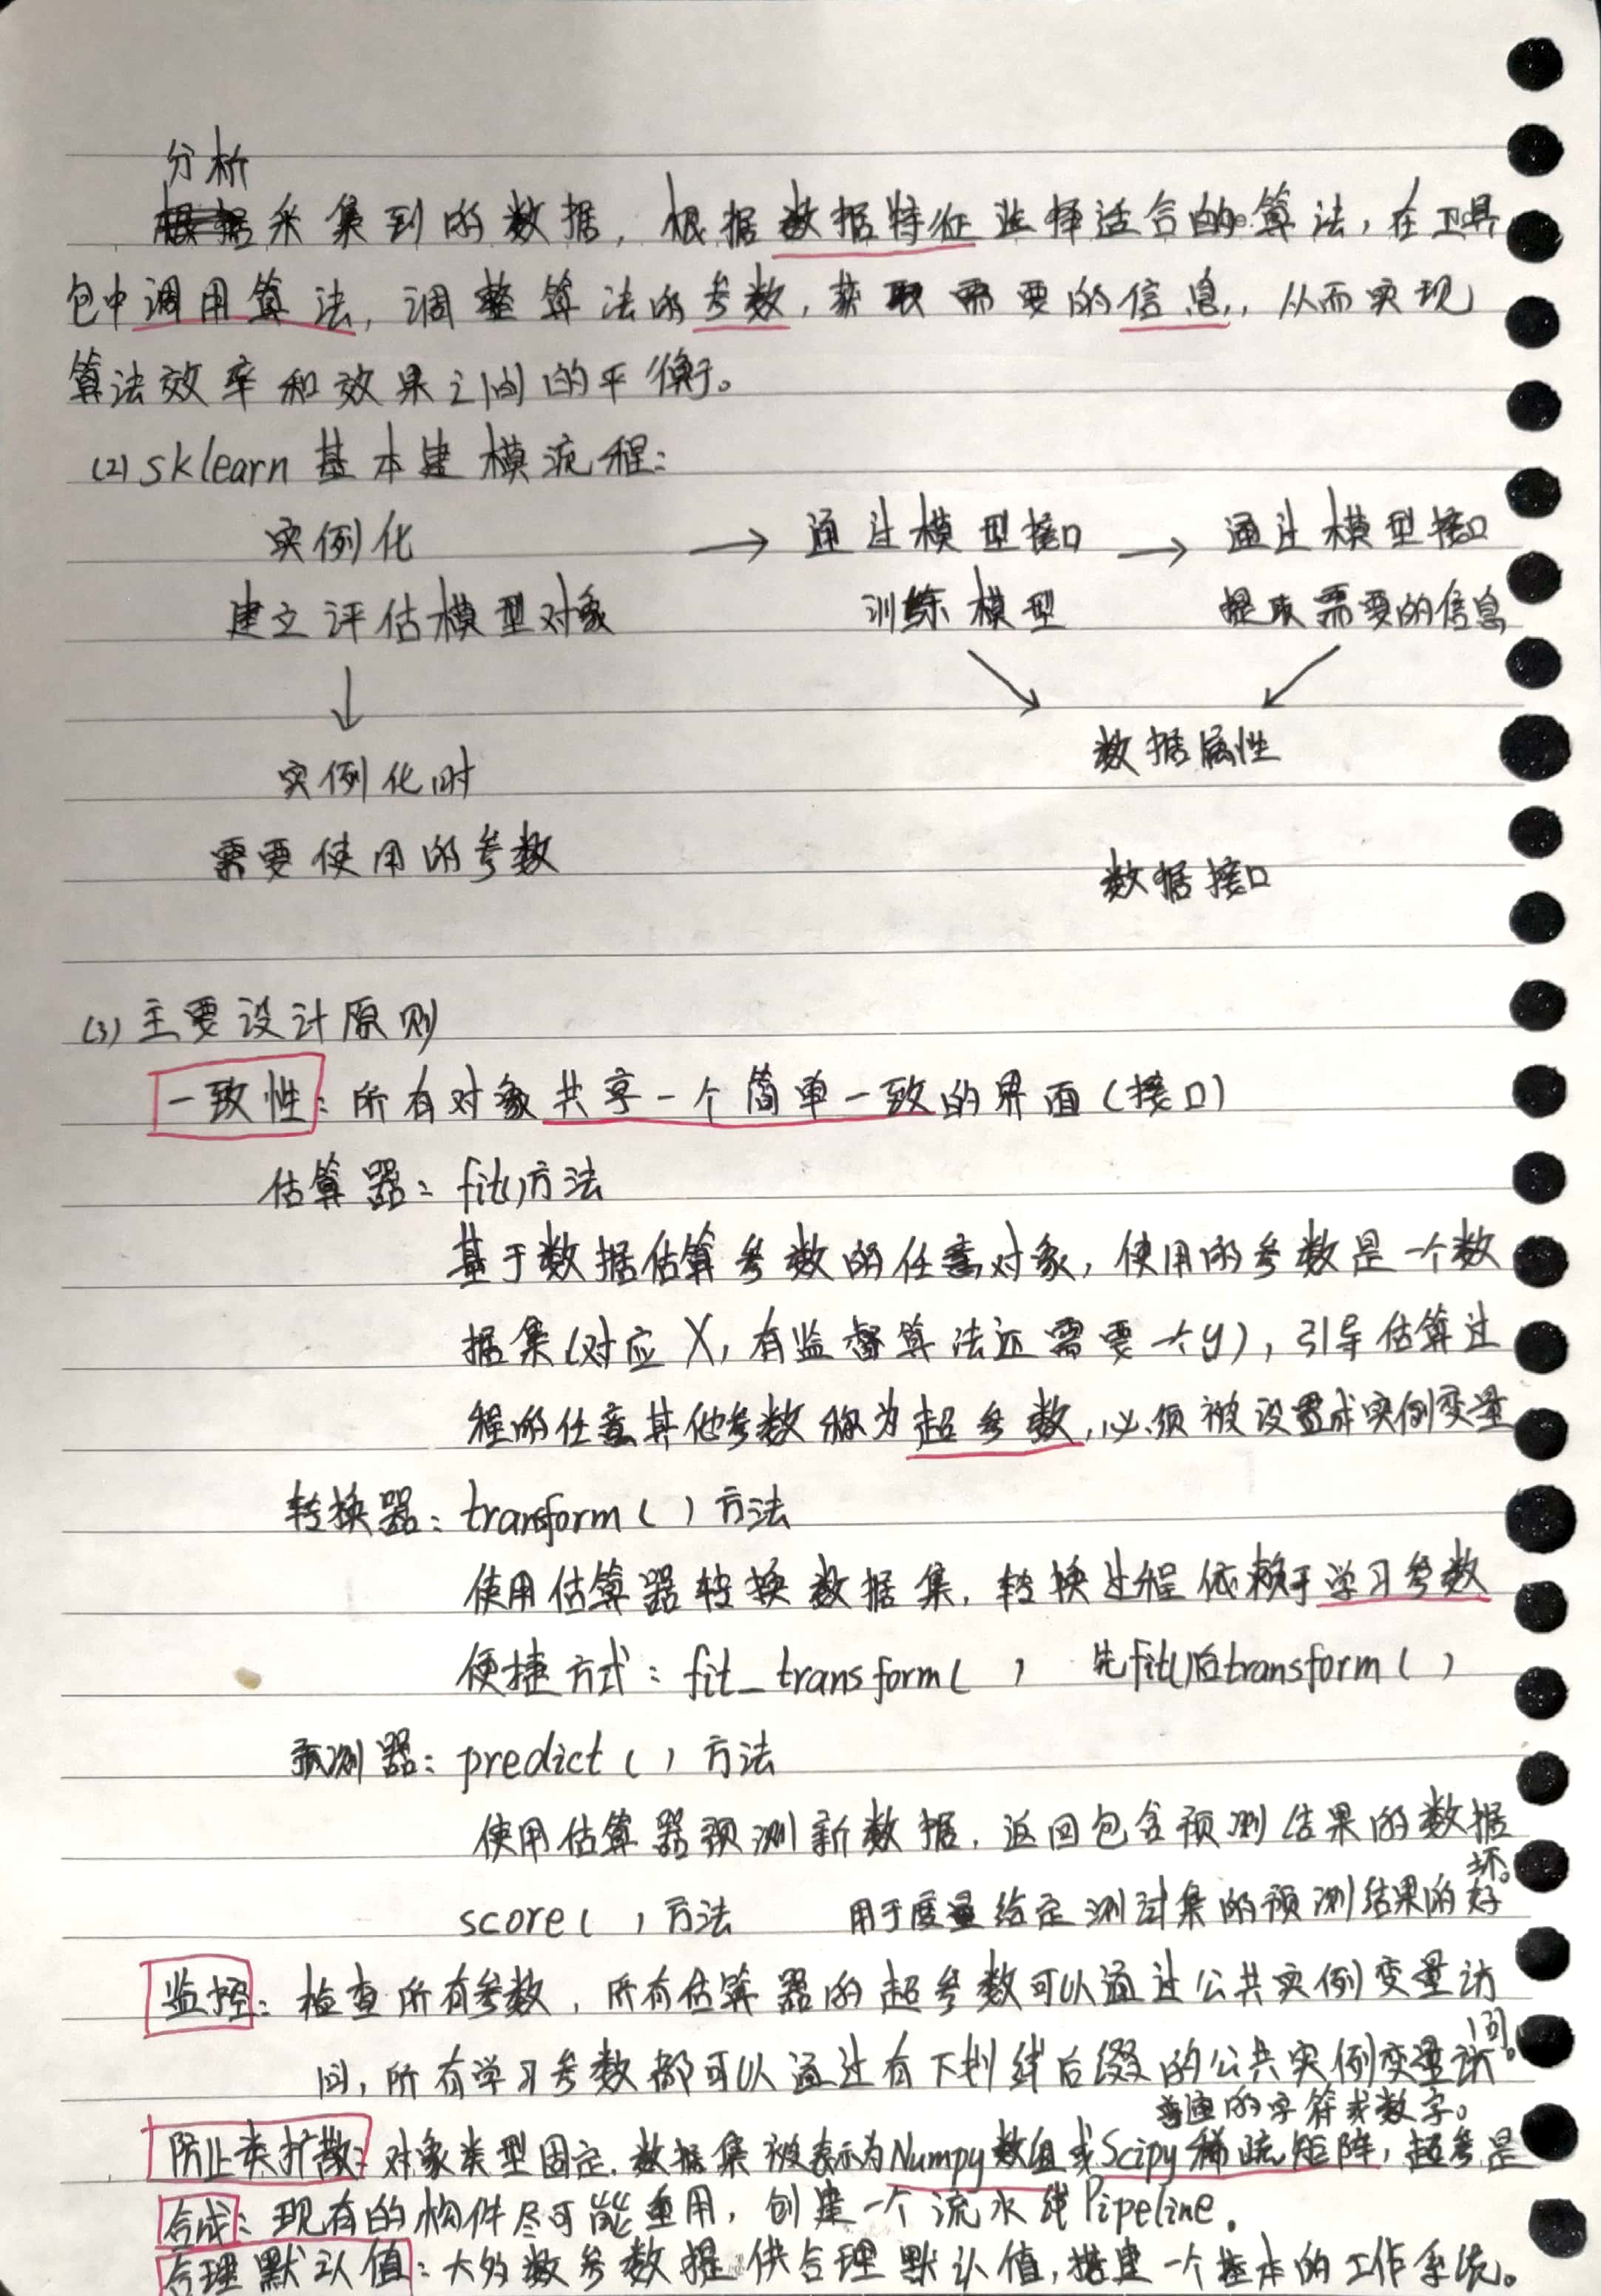 分析
采集到的数据，根据数据特征选择适合的算法，在工具
包中调用算法，调整算法的参数，获取需要的信息，从而实现
算法效率和效果之间的平衡。
(2) sklearn 基本建模流程：
实例化 → 通过模型接口 → 通过模型接口
建立评估模型对象 训练模型 提取需要的信息
↓ ↘ ↙
数据属性
实例化时
需要使用的参数
数据接口
(3) 主要设计原则
一致性：所有对象共享一个简单一致的界面（接口）
估算器：fit()方法
基于数据估算参数的任意对象，使用的参数是一个数
据集(对应X，有监督算法还需要一个y)，引导估算过
程的任意其他参数称为超参数，必须被设置成实例变量
转换器：transform()方法
使用估算器转换数据集，转换过程依赖于学习参数
便捷方式：fit_transform() 先fit()后transform()
预测器：predict()方法
使用估算器预测新数据，返回包含预测结果的数据
score()方法 用于度量给定测试集的预测结果的好
坏。
监控：检查所有参数，所有估算器的超参数可以通过公共实例变量访
问，所有学习参数都可以通过有下划线后缀的公共实例变量访
问。
防止类扩散：对象类型固定，数据集被表示为Numpy数组或Scipy稀疏矩阵，超参是
普通的字符或数字。
合成：现有的构件尽可能重用，创建一个流水线Pipeline.
合理默认值：大多数参数提供合理默认值，搭建一个基本的工作系统。